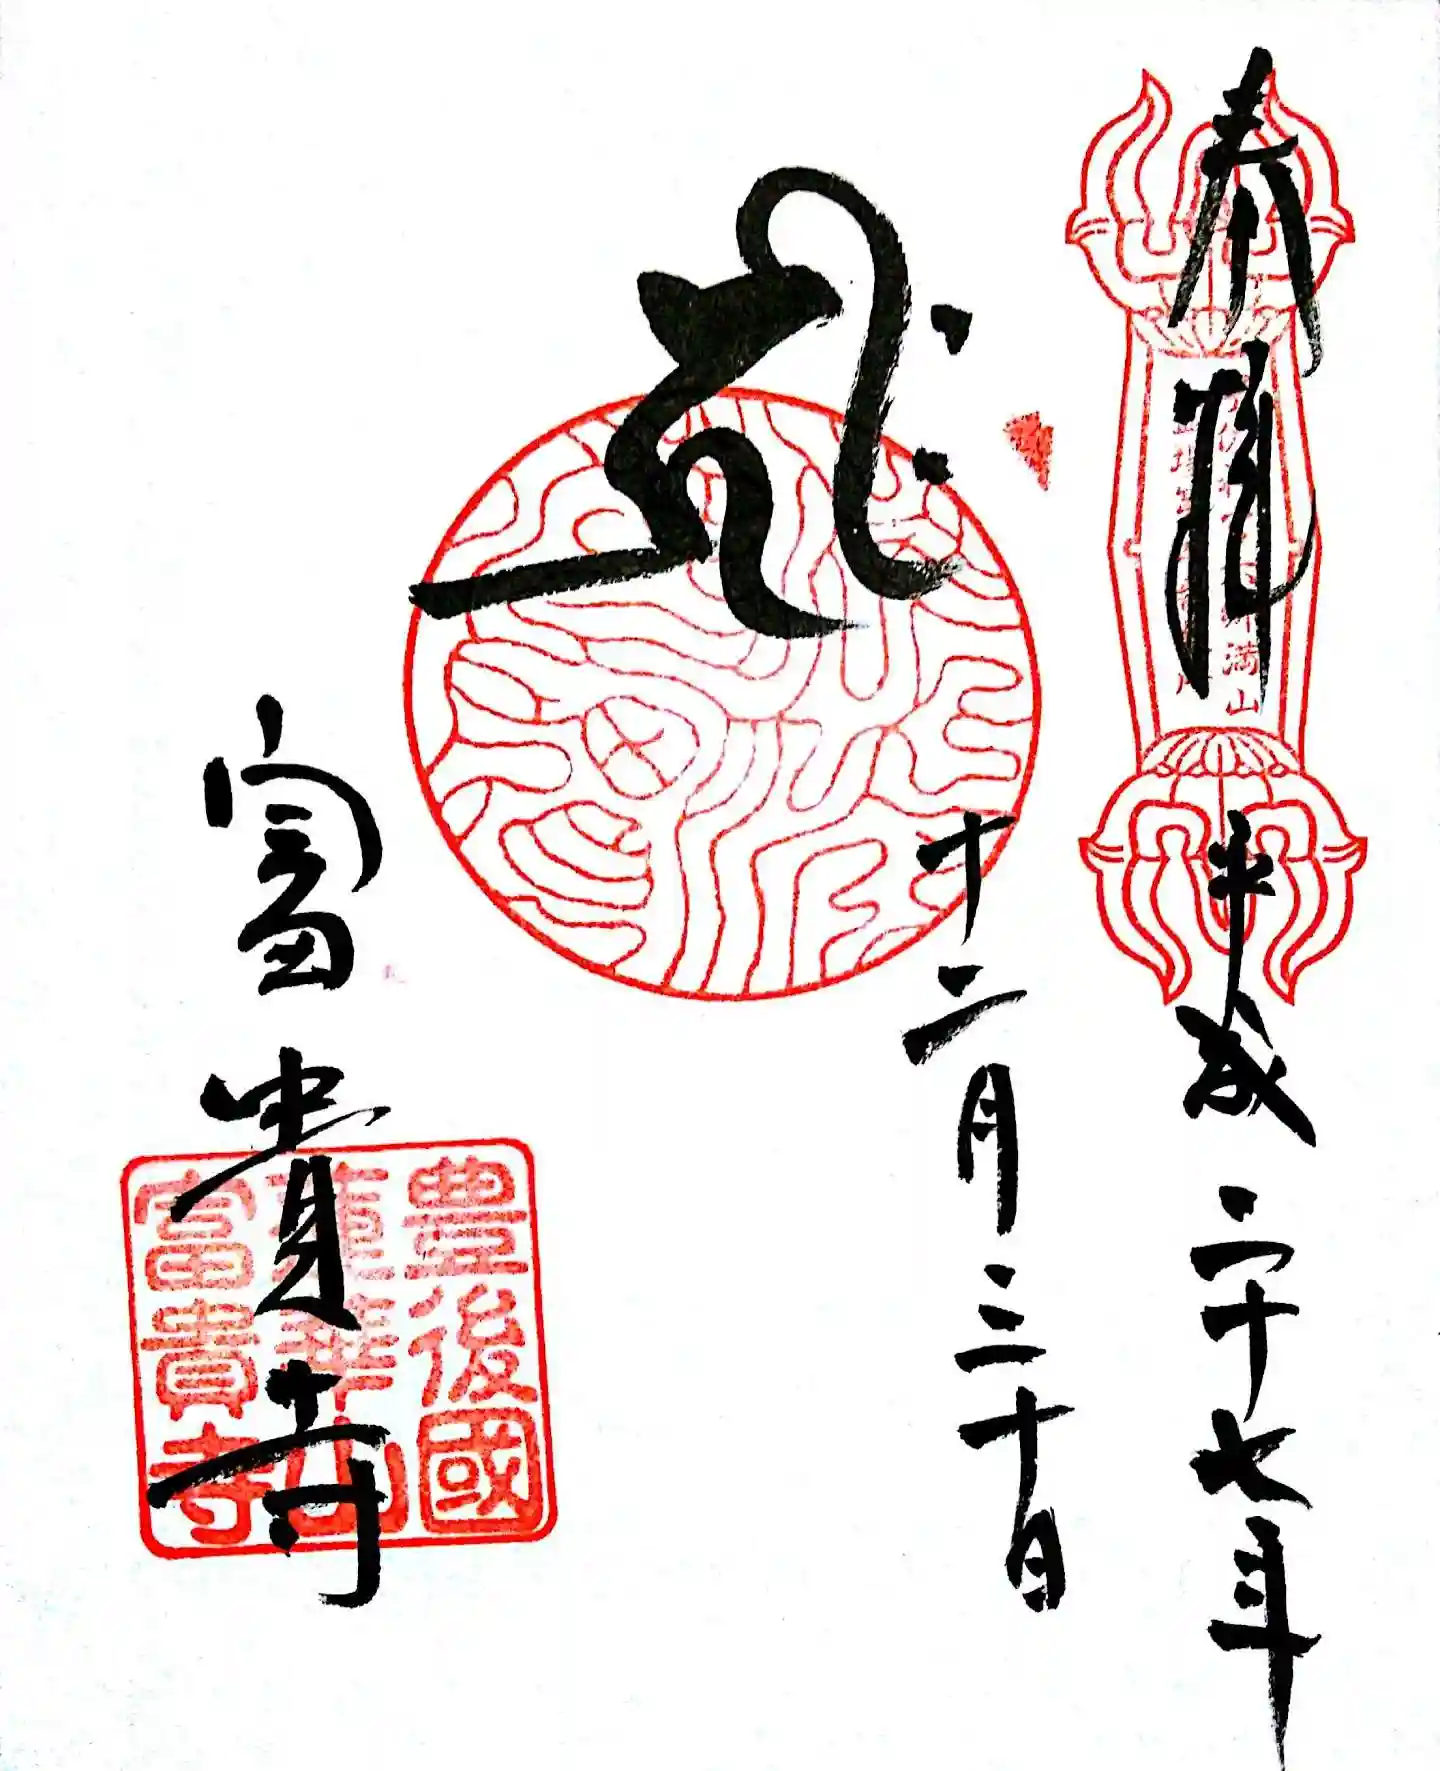 奉拝
平成二十七年
十二月三十日
満山
ह्रीः
富貴寺
豊後國
蓮華山
富貴寺